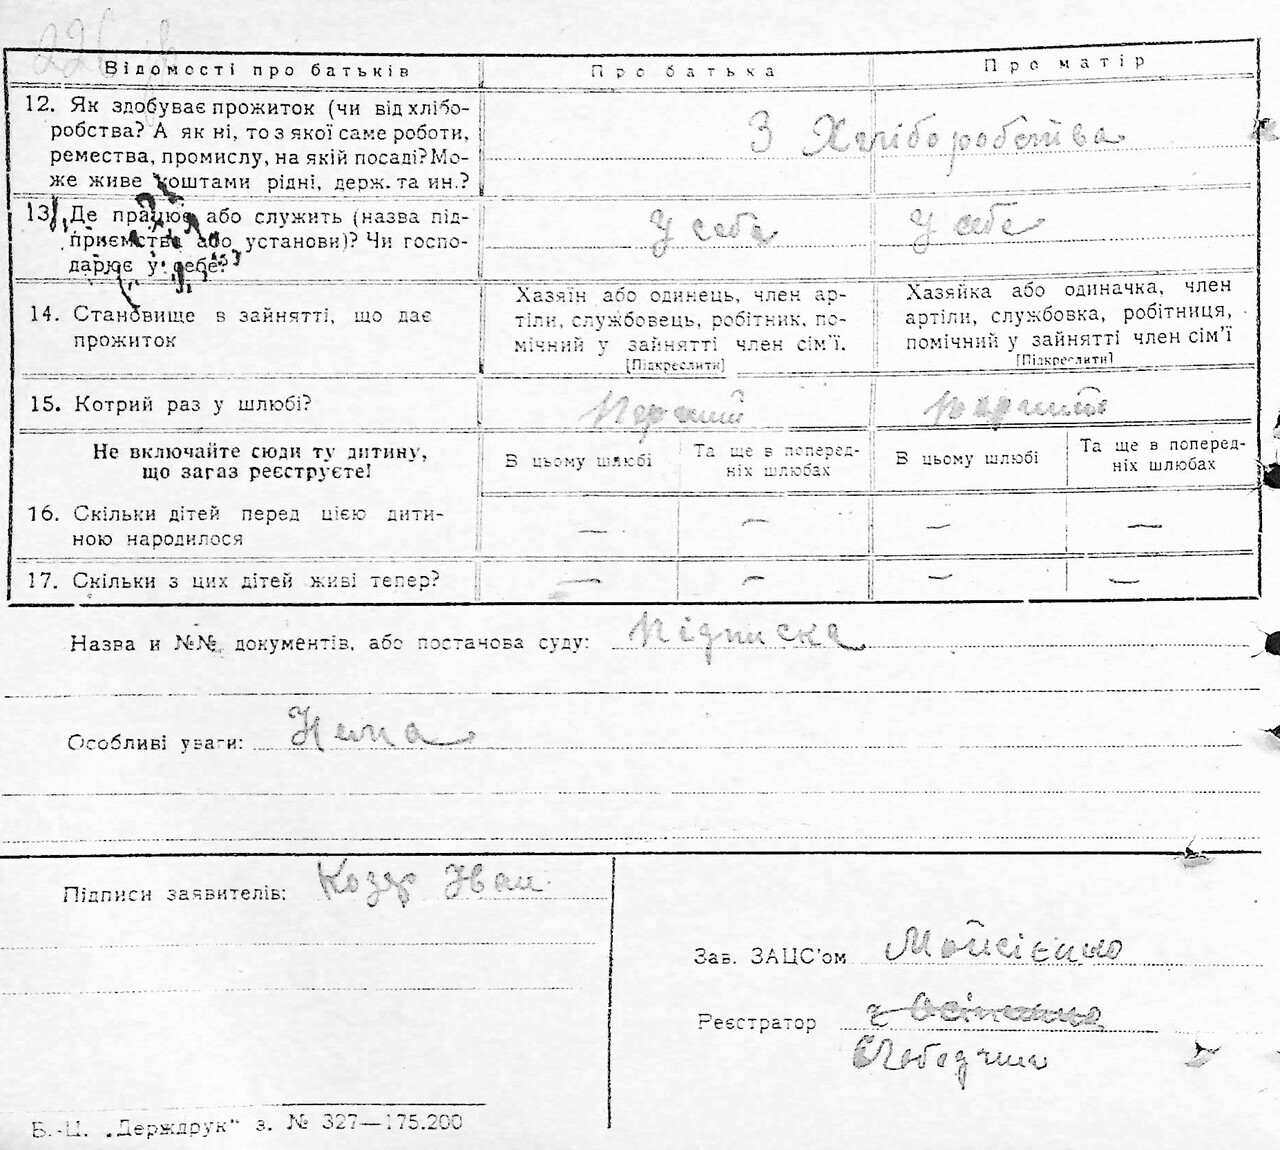 226 зв
Відомості про батьків Про батька Про матір
12. Як здобуває прожиток (чи від хлібо-
робства? А як ні, то з якої саме роботи,
ремества, промислу, на якій посаді? Мо-
же живе коштами рідні, держ. та ин.?
З Хліборобства
13. Де працює або служить (назва під-
приємства або установи)? Чи госпо-
дарює у себе?
У себе У себе
14. Становище в зайнятті, що дає
прожиток
Хазяїн або одинець, член ар-
тіли, службовець, робітник, по-
мічний у зайнятті член сім'ї.
[Підкреслити]
Хазяйка або одиначка, член
артіли, службовка, робітниця,
помічний у зайнятті член сім'ї
[Підкреслити]
15. Котрий раз у шлюбі? Перший Перший
Не включайте сюди ту дитину,
що загаз реєструєте!
В цьому шлюбі
Та ще в поперед-
ніх шлюбах
В цьому шлюбі
Та ще в поперед-
ніх шлюбах
16. Скільки дітей перед цією дити-
ною народилося
— — — —
17. Скільки з цих дітей живі тепер? — — — —
Назва и №№ документів, або постанова суду: Підписка
Особливі уваги: Нема
Підписи заявителів: Козир Іван
Зав. ЗАЦС'ом Мойсієнко
Реєстратор
Б.-Ц. „Держдрук" з. № 327—175.200